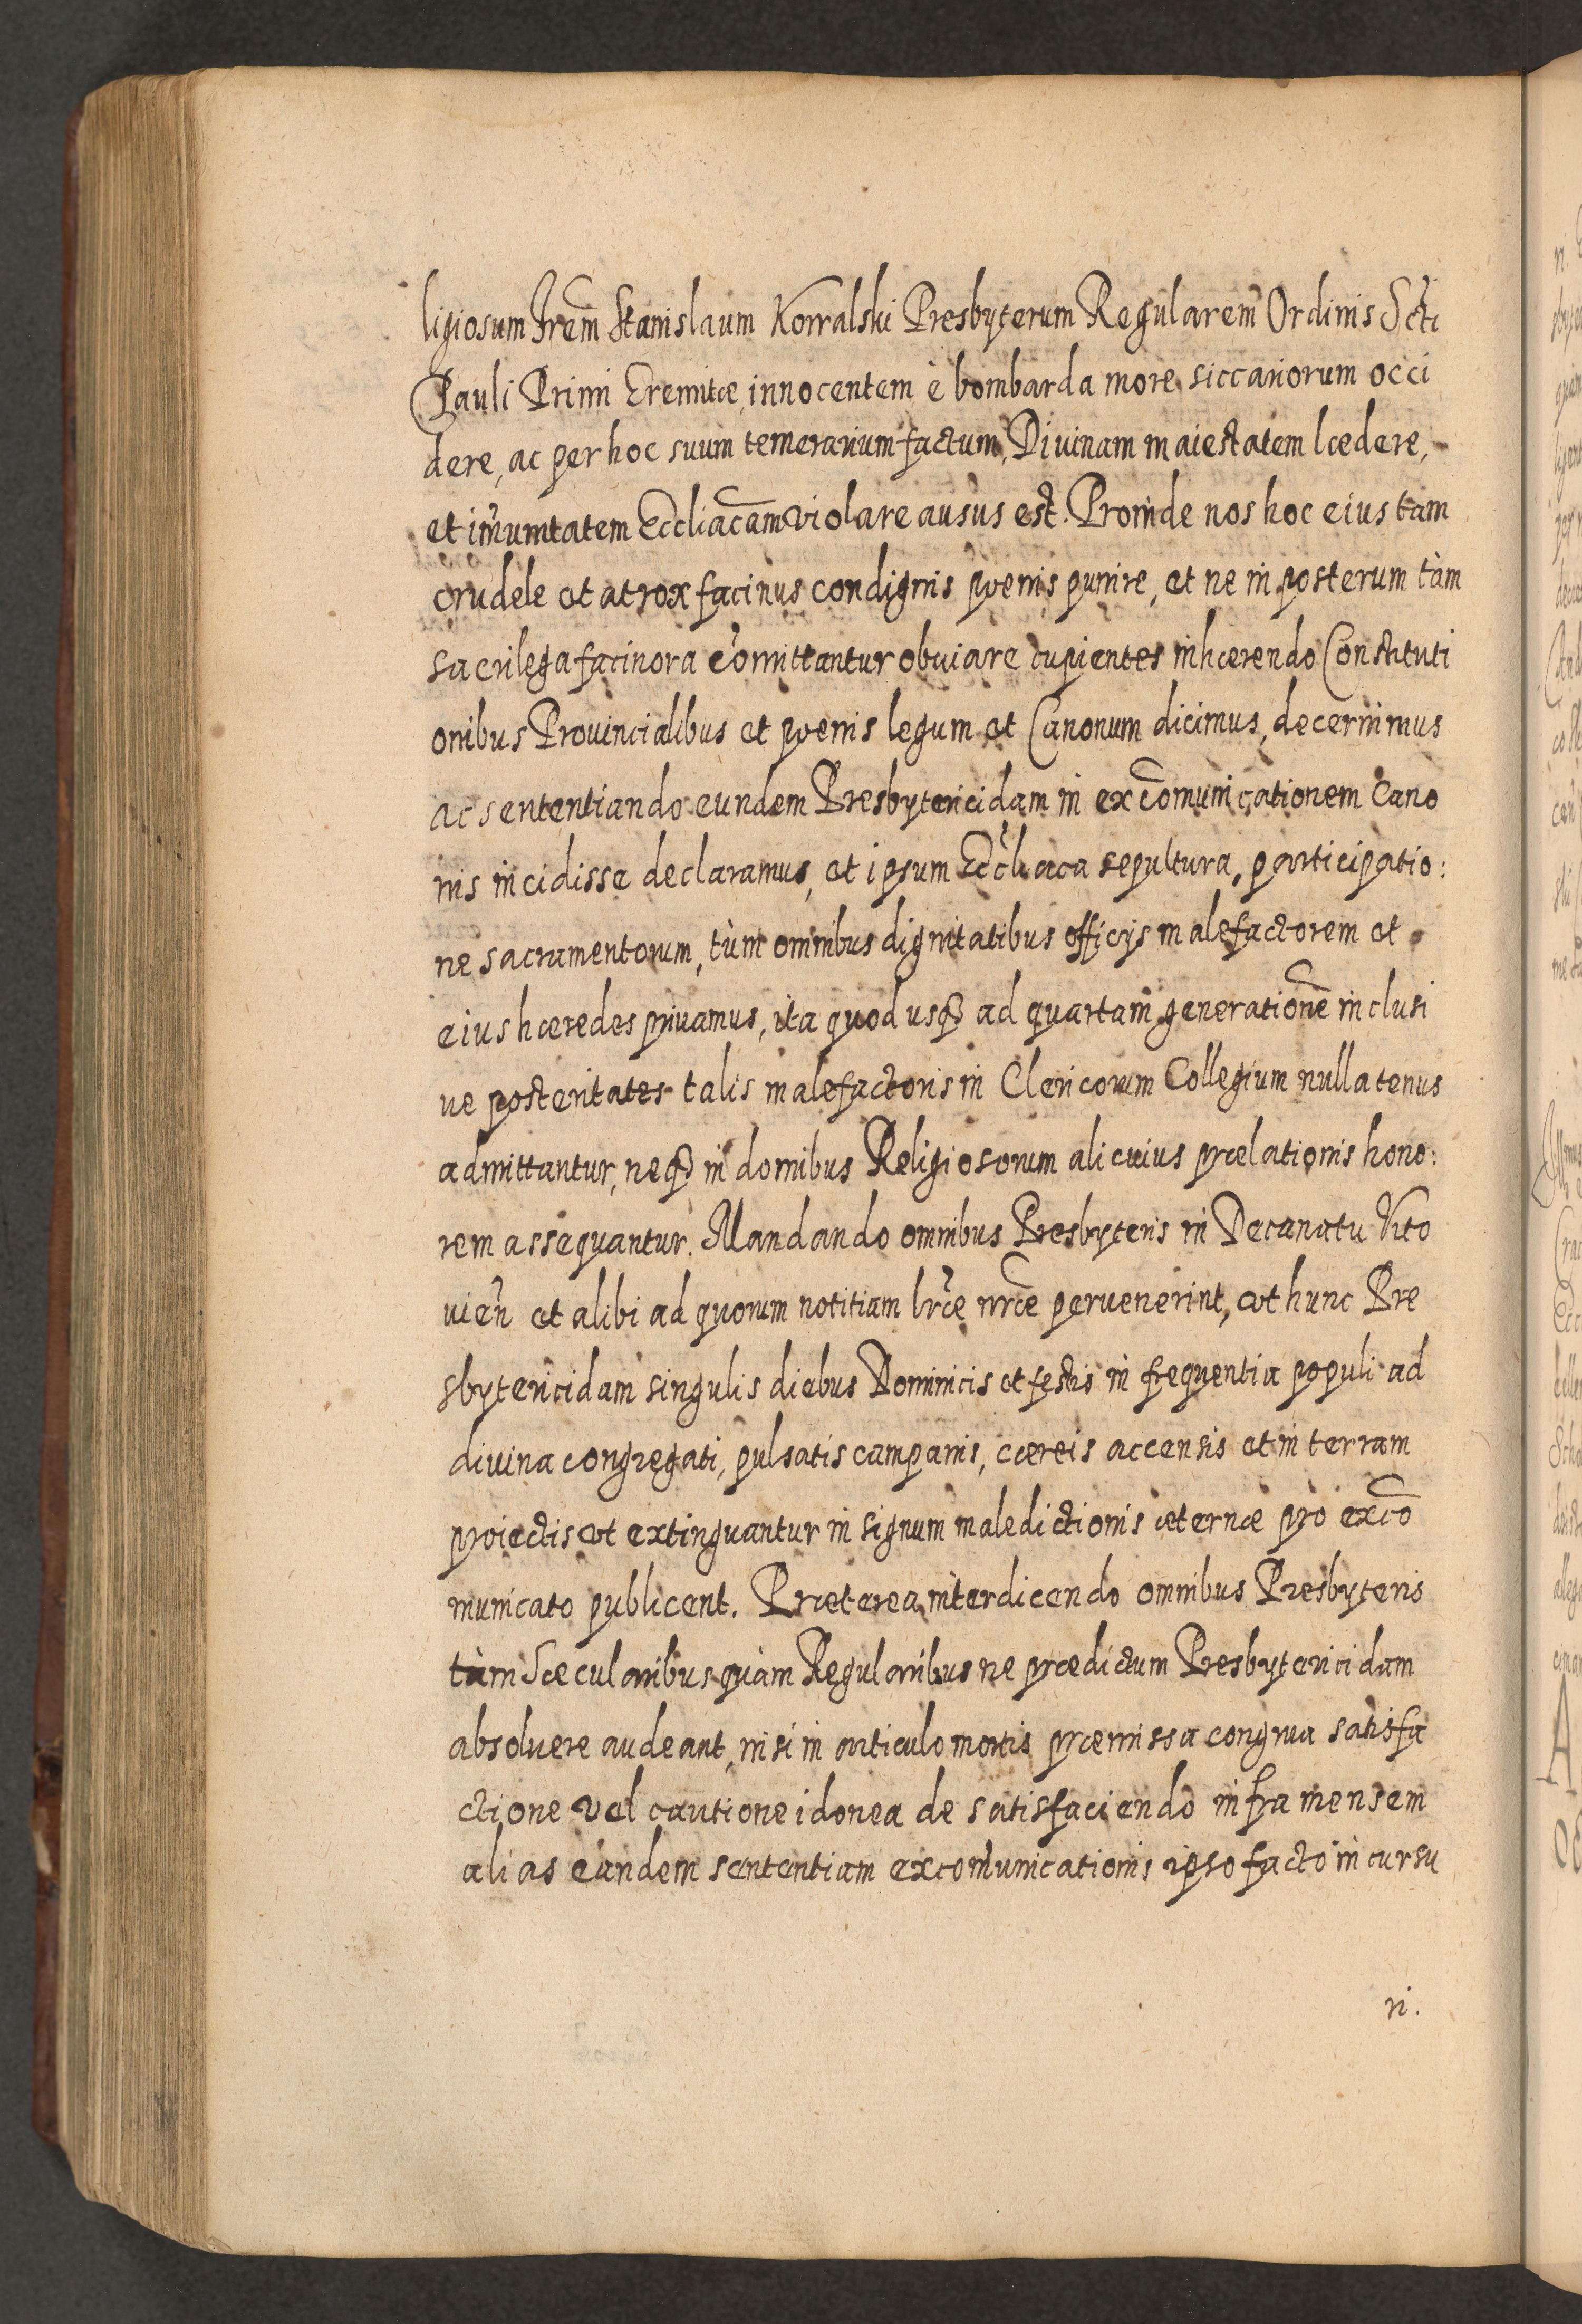 ligiosum Frem̃ Stanislaum Kowalski Presbyterum Regularem Ordinis Scti
Pauli Primi Eremitæ, innocentem è bombarda more siccariorum occi
dere, ac per hoc suum temerarium factum, Divinam maiestatem lædere,
et im̃unitatem Ecc̃liacam violare ausus est. Proinde nos hoc eius tam
crudele et atrox facinus condignis pœnis punire, et ne in posterum tàm
sacrilega facinora com̃ittantur obuiare cupientes inhærendo Constituti
onibus Prouincialibus et pœnis legum et Canonum dicimus, decernimus
ac sententiando eundem Presbytericidam in excom̃unicationem Cano
nis incidisse declaramus, et ipsum Ecc̃liaca sepultura, participatio:
ne sacramentorum, tùm omnibus dignitatibus officijs malefactorem et
eius hæredes priuamus, ita quod usq3 ad quartam generationẽ inclusi
ue posteritates talis malefactoris in Clericorum Collegium nullatenus
admittantur, neq3 in domibus Religiosorum alicuius prælationis hono:
rem assequantur. Mandando omnibus Presbyteris in Decanatu Vito
vień et alibi ad quorum notitiam lr̃æ nr̃æ peruenerint, ut hunc Pre
sbytericidam singulis diebus Dominicis et festis in frequentia populi ad
divina congregati, pulsatis campanis, cæreis accensis et in terram
proiectis ut extinguantur in signum maledictionis æternæ pro excõ
municato publicent. Præterea interdicendo omnibus Presbyteris
tàm Sæcularibus quàm Regularibus ne prædictum Presbytericidam
absoluere audeant, nisi in articulo mortis præmissa congrua satisfa
ctione vel cautione idonea de satisfaciendo infra mensem
alias eandem sententiam excom̃unicationis ipso facto incursu
ri.